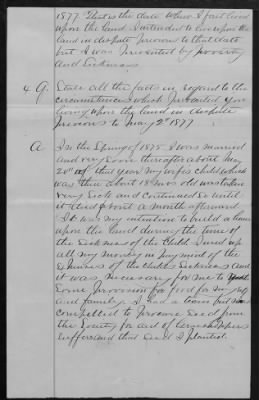 1877. That is the date when I first lived
upon the land. I intended to live upon the
land in dispute previous to that date
but I was prevented by poverty
and Sickness
4 Q. State all the facts in regard to the
circumstances which prevented you
living upon the land in dispute
previous to May 2nd 1877
A In the Spring of 1875 I was married
and very soon thereafter about May
20th of that year my wifes child which
was then about 18 mos old was taken
very Sick and continued so until
it died about a month afterward
It was my intention to build a house
upon the land during the time of
the Sickness of the Child. I used up
all my money in payment of the
expenses of the child's Sickness and
it was necessary for me to
Some provision for food for my self
and family. I had a team but was
compelled to procure Seed from
the County for aid of Grasshoppers
Sufferers and that Seed I planted.